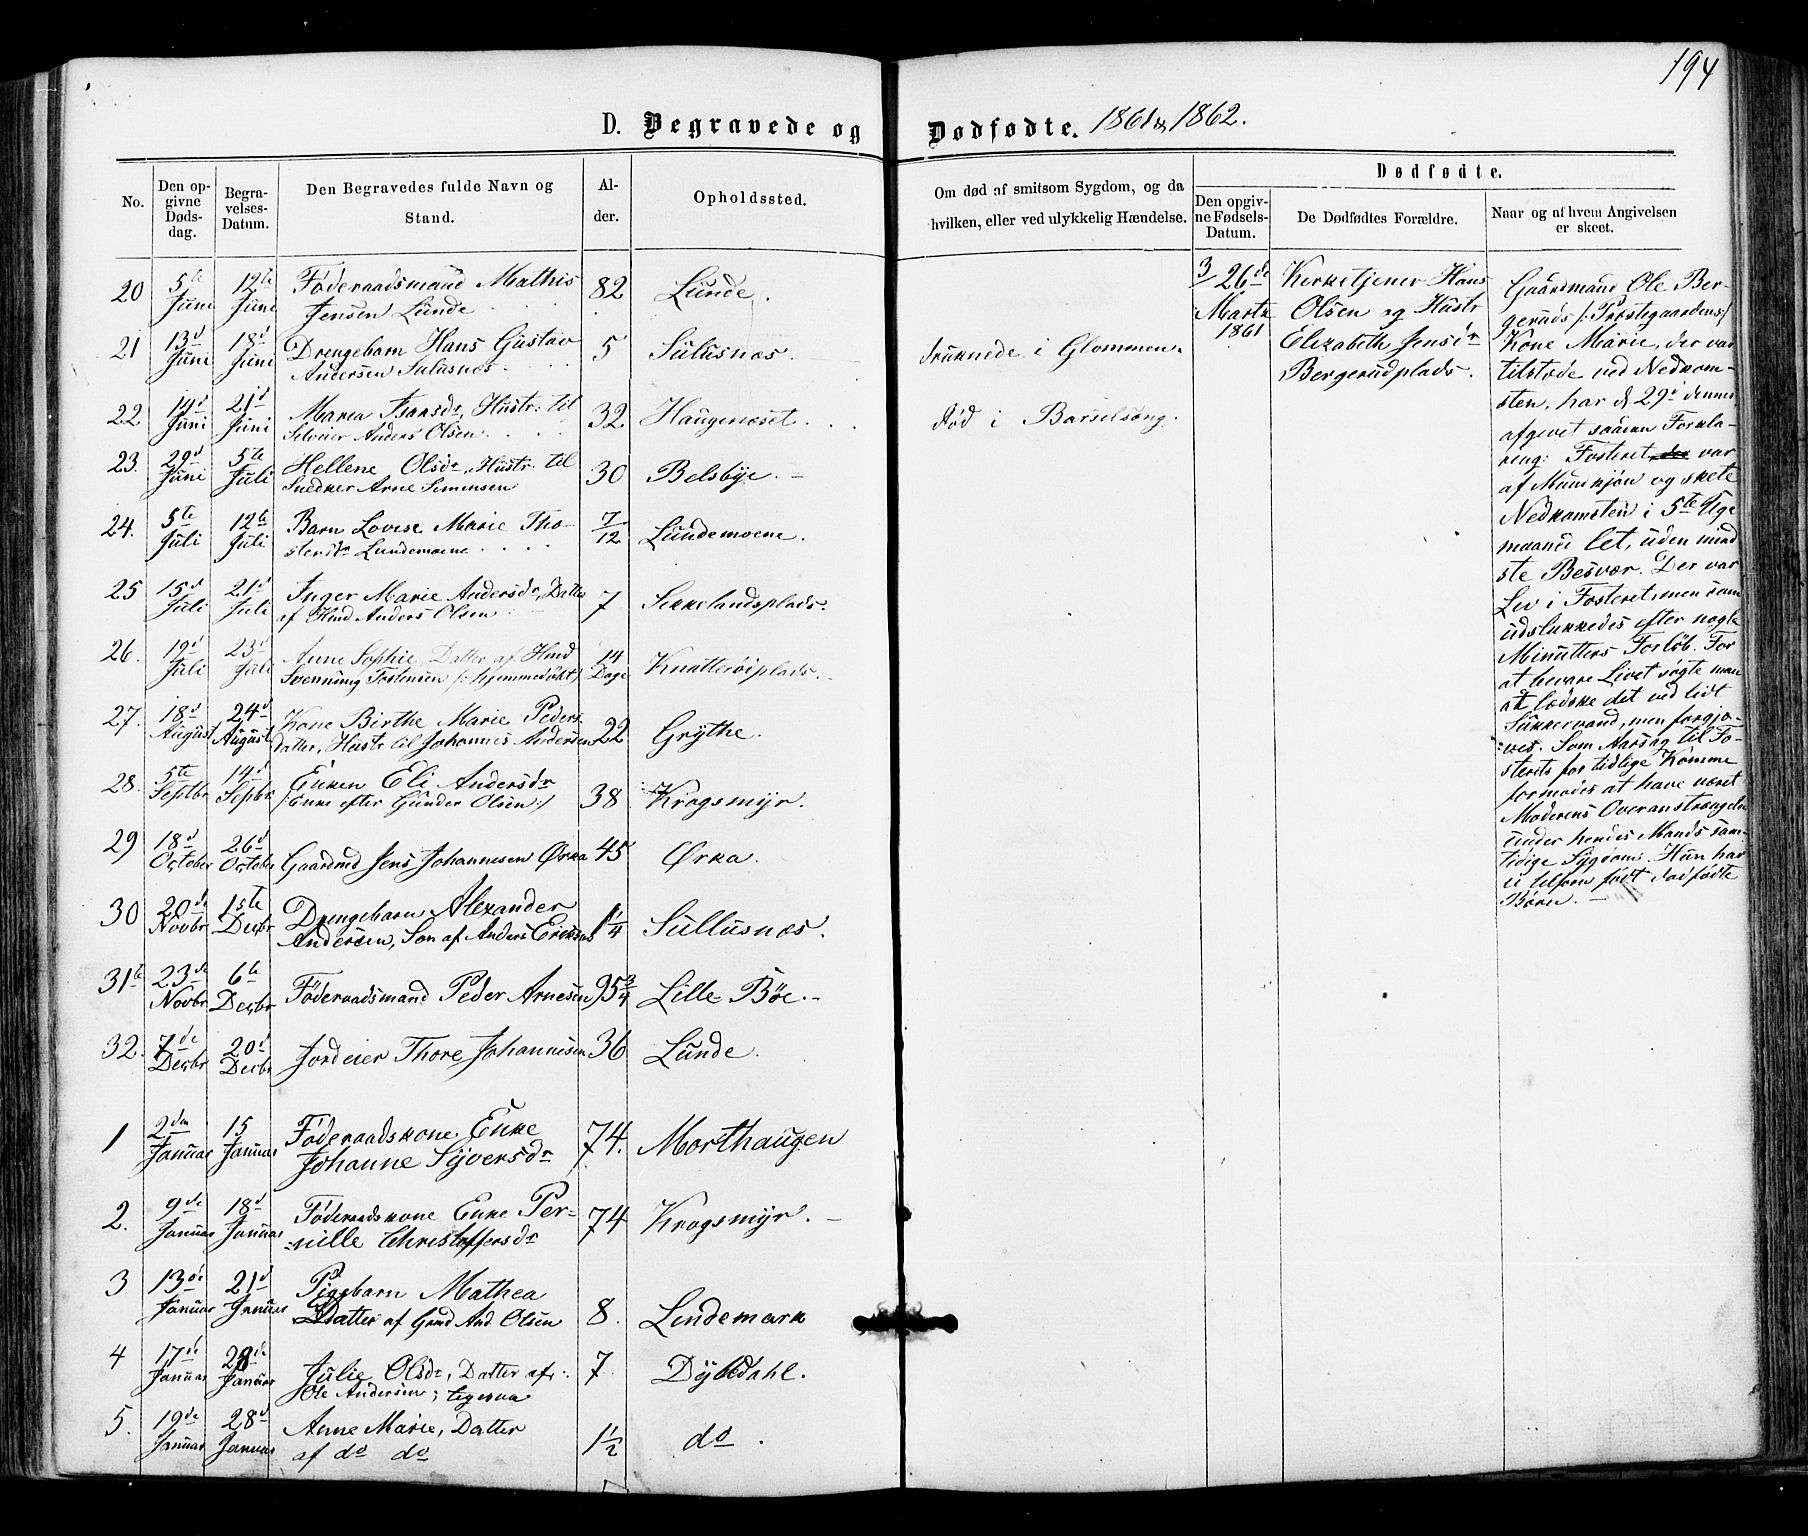 194
D. Begravede og Dødfødte. 1861 & 1862.
No.
Den opgivne Dødsdag.
Begravelses-Datum.
Den Begravedes fulde Navn og Stand.
Alder.
Opholdssted.
Om død af smitsom Sygdom, og da hvilken, eller ved ulykkelig Hændelse.
Dødfødte.
Den opgivne Fødsels-Datum.
De Dødfødtes Forældre.
Naar og af hvem Angivelsen er skeet.
20 5te Juni 12te Juni Föderaadsmand Mathis
Jensen Lunde 82 Lunde.
21 13d Juni 18d Juni Drengebarn Hans Gustav
Andersen Sulusnæs. 5 Sulusnæs. druknede i Glommen.
22 14d Juni 21d Juni Maren Hustr: til
Selveier Anders Olsen. 32 Haugenæset. död i Barselsäng.
23. 29d Juni 5te Juli Hellene Olsdr, Hustr: til
Snedker Arne Simensen 30 Belsbye.
24. 5te Juli 12te Juli Barn Lovise Marie Tho-
stensdr Lundemoene 7/12 Lundemoene.
25 15d Juli 21d Juli Inger Marie Andersdr, Datter
af Hmd Anders Olsen 7 Sikkelandsplads
26. 19d Juli 23d Juli Anne Sophie, Datter af Hmd
Svenning Tostensen /: hjemmedöbt/ 14 Dage Knatteröiplads.
27. 18d August 24d August Kone Birthe Marie Peders-
datter, Hustr til Johannes Andersen 22 Grythe.
28. 5te Septbr 14d Sepbr Enken Eli Andersdr
/: Enke efter Gunder Olsen :/ 38 Krogsmyr.
29 18d October 26d October Gaardmd Jens Johannesen Ørka 45 Ørka.
30 20de Novbr 1ste Decbr Drengebarn Alexander
Andersen, Søn af Anders Eriksen 1 1/4 Sullusnæs.
31te 23de Novbr 6te Decbr Föderaadsmand Peder Arnesen 95 3/4 Lille Böe.
32. 7de Decbr 20d Decbr Jordeier Thore Johannesen 36 Lunde.
1 2den Januar 15 Januar Föderaadskone. Enke
Johanne Syversdr 74. Morthaugen
2. 9de Januar 18d Januar Föderaadskone Enke Per-
nille Christoffersdr 74 Krogsmyr.
3 13de Januar 21d Januar Pigebarn Mathea
Datter af Grmd And. Olsen 8. Lindemark
4 17de Januar 28de Januar Julie Olsdr, Datter af
Ole Andersen, 7 Dybdahl.
5. 19de Januar 28d Januar Anne Marie, Datter
af do do 1 1/2 do.
3/26de Marts 1861
Kirketjener Hans
Olsen og Hustr
Elizabeth Jensdr
Bergerudplads.
Gaardmand Ole Ber-
geruds /: Præstegaardens:/
Kone Marie, der var
tilstede ved Nedkom-
sten, har d 29d dennes
afgivet saadan Forkla-
ring: Fosteret var
af Mandkjön og skete
Nedkomsten i 5te Uge
let, uden mind
ste Besvær. Der var
Liv i Fosteret, men som
udslukkedes efter nogle
Minutters Forlöb. For
at bevare Livet sögte man
at lædske det ved lidt
Sukkervand, men forgjæ-
ves. Som Aarsag til Fo-
sterets for tidlige Komme
formodes at have været
Moderens Overanstrængelse
under hendes Mands sam-
tidige Sygdom. Hun har
tilforn födt dödfödte
Börn.